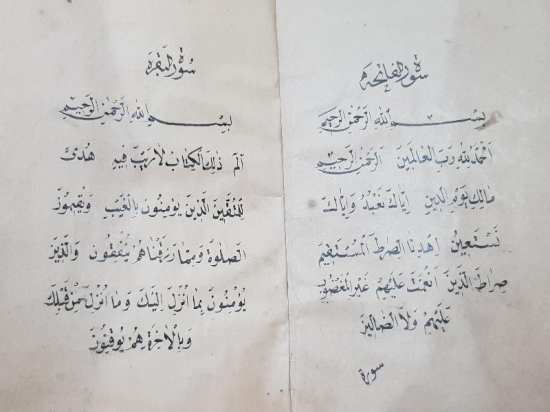 سورة الفاتحة
بسم الله الرحمن الرحيم
الحمد لله رب العالمين الرحمن الرحيم
مالك يوم الدين اياك نعبد واياك
نستعين اهدنا الصراط المستقيم
صراط الذين انعمت عليهم غير المغضوب
عليهم ولا الضالين
سورة
سورة البقرة
بسم الله الرحمن الرحيم
الم ذلك الكتاب لا ريب فيه هدى
للمتقين الذين يؤمنون بالغيب ويقيمون
الصلوة ومما رزقناهم ينفقون والذين
يؤمنون بما انزل اليك وما انزل من قبلك
وبالاخرة هم يوقنون